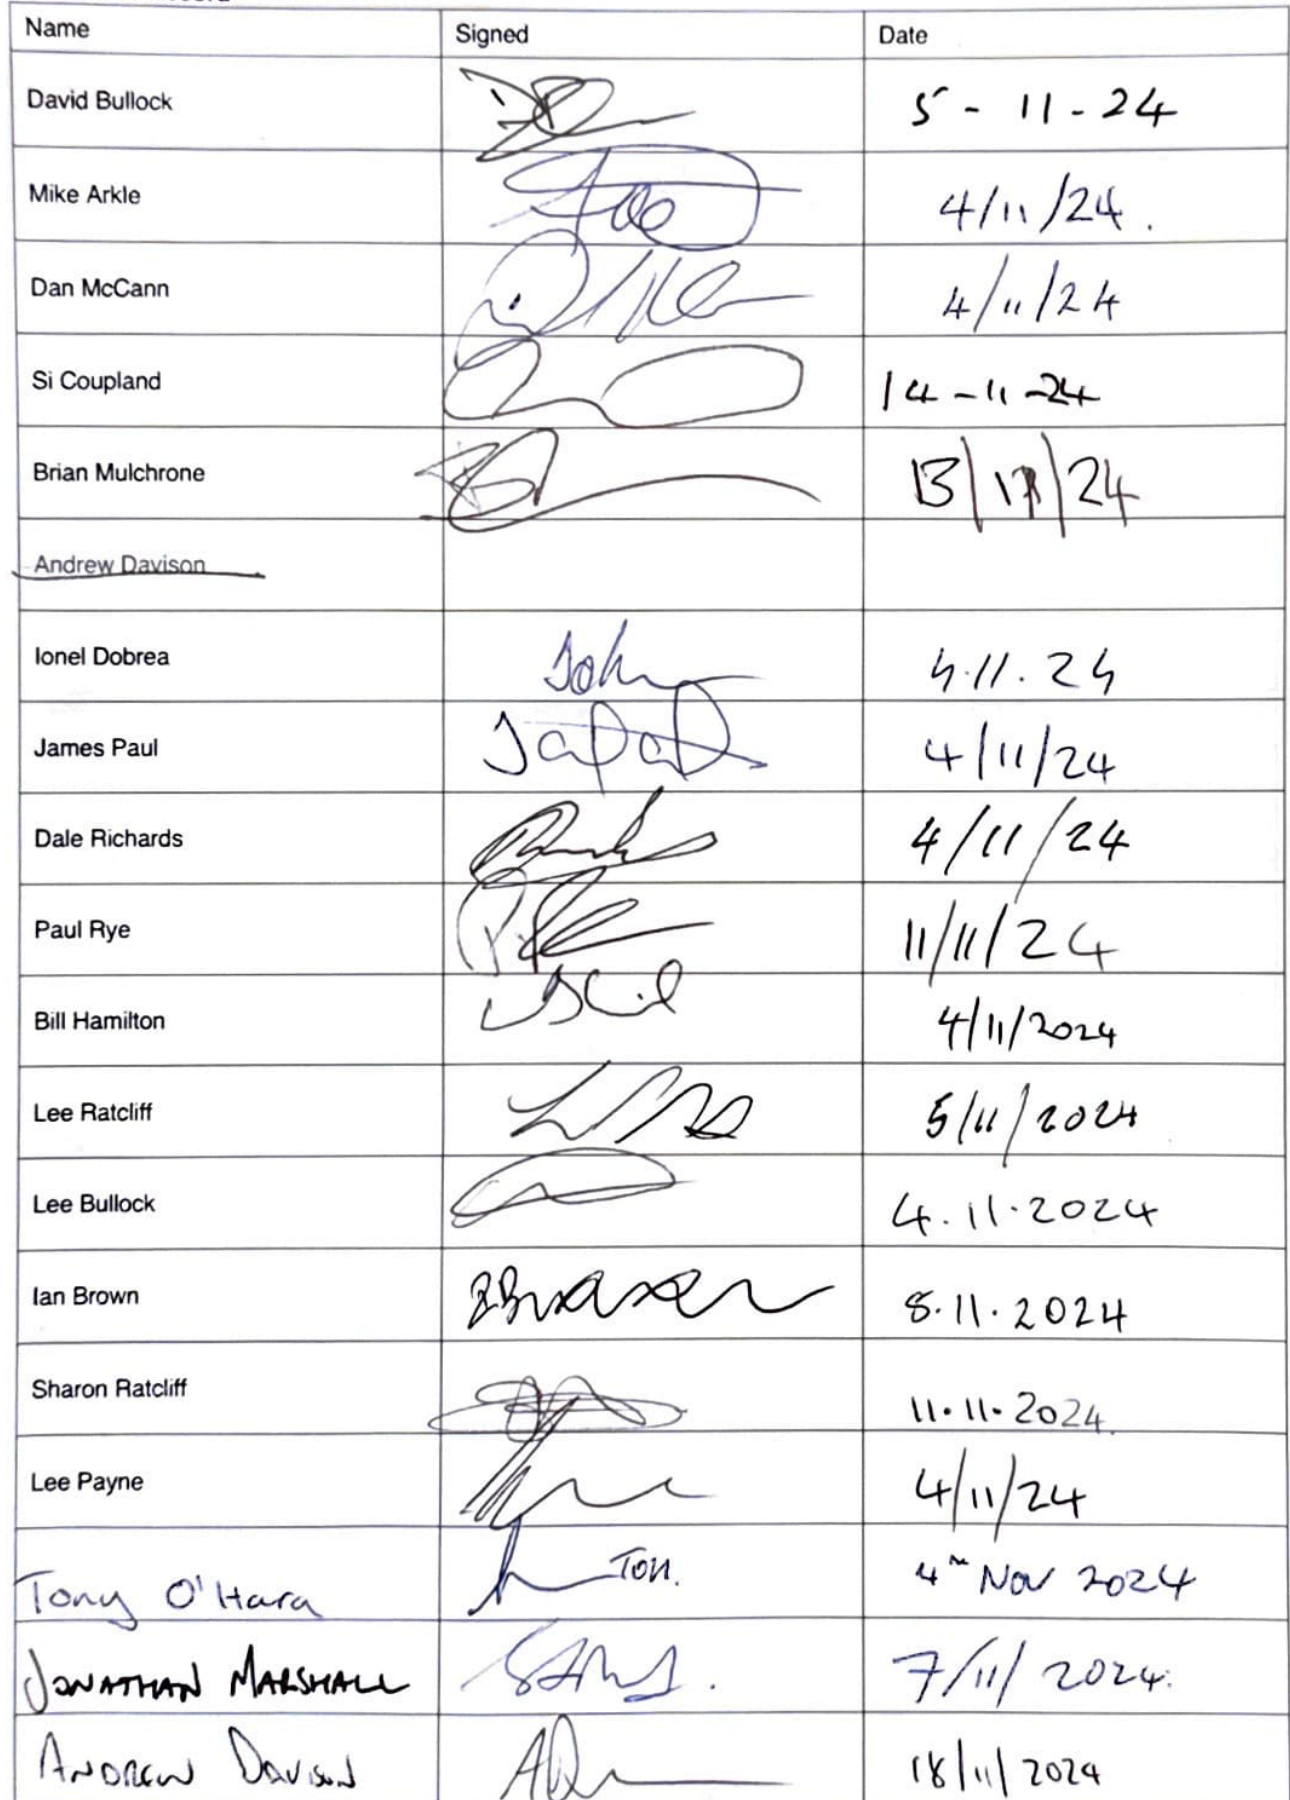 Name Signed Date
David Bullock 5 - 11 - 24
Mike Arkle 4/11/24.
Dan McCann 4/11/24
Si Coupland 14 - 11 - 24
Brian Mulchrone 13/11/24
Andrew Davison
Ionel Dobrea 4.11.24
James Paul 4/11/24
Dale Richards 4/11/24
Paul Rye 11/11/24
Bill Hamilton 4/11/2024
Lee Ratcliff 5/11/2024
Lee Bullock 4.11.2024
Ian Brown 8.11.2024
Sharon Ratcliff 11.11.2024.
Lee Payne 4/11/24
Tony O'Hara TOH. 4th Nov 2024
JONATHAN MARSHALL 7/11/2024.
ANDREW DAVISON 18/11/2024